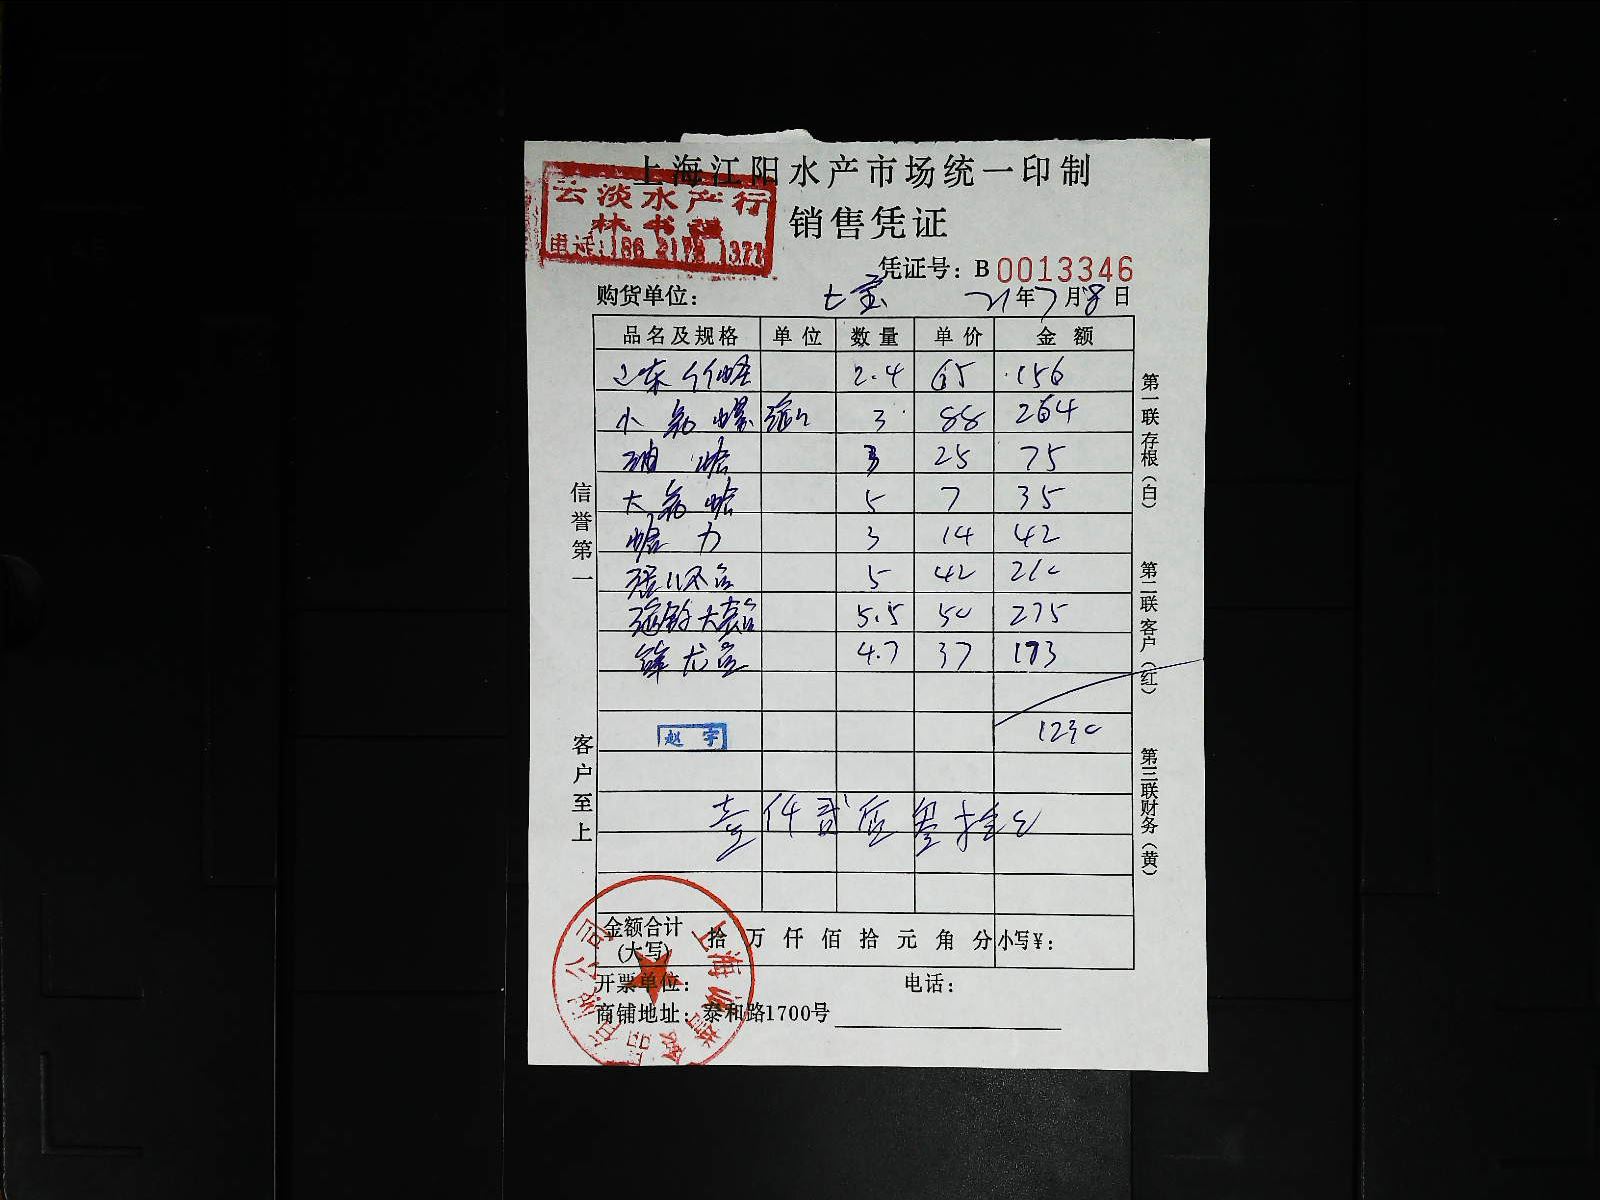 上海江阳水产市场统一印制
云淡水产行
林书强
电话:186 2178 1377
销售凭证
凭证号:B 0013346
购货单位: 七宝 21年7月8日
品名及规格 单位 数量 单价 金额
山东竹蛏 2.4 65 156
小 螺 3 88 264
油蛤 3 25 75
大 蛤 5 7 35
蛤力 3 14 42
5 42 210
5.5 50 275
4.7 37 173
1230
赵宇
壹仟贰佰叁拾元
金额合计(大写) 拾 万 仟 佰 拾 元 角 分 小写¥:
开票单位: 电话:
商铺地址:泰和路1700号
信誉第一
客户至上
第一联存根(白)
第二联客户(红)
第三联财务(黄)